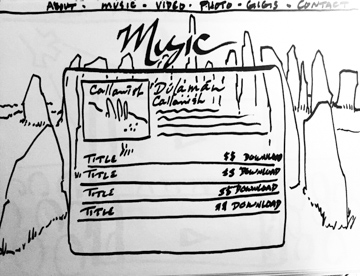 ABOUT · MUSIC · VIDEO · PHOTO · GIGS · CONTACT
Music
Callanish
Dúlamán
Callanish
TITLE $$ DOWNLOAD
TITLE $$ DOWNLOAD
TITLE $$ DOWNLOAD
TITLE $$ DOWNLOAD